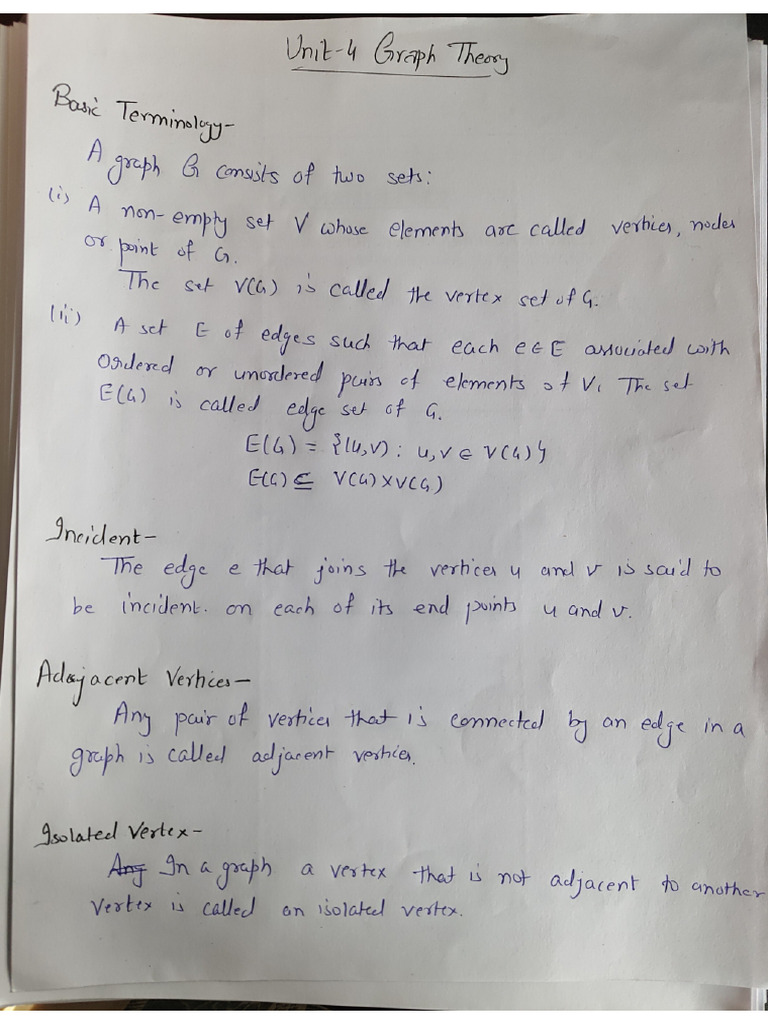 Unit-4 Graph Theory
Basic Terminology-
A graph G consists of two sets:
(i) A non-empty set V whose elements are called vertices, nodes
or point of G.
The set V(G) is called the vertex set of G.
(ii) A set E of edges such that each e ∈ E associated with
ordered or unordered pairs of elements of V. The set
E(G) is called edge set of G.
E(G) = {(u,v) : u,v ∈ V(G)}
E(G) ⊆ V(G)×V(G)
Incident-
The edge e that joins the vertices u and v is said to
be incident. on each of its end points u and v.
Adjacent Vertices-
Any pair of vertices that is connected by an edge in a
graph is called adjacent vertices.
Isolated Vertex-
Any In a graph a vertex that is not adjacent to another
vertex is called an isolated vertex.